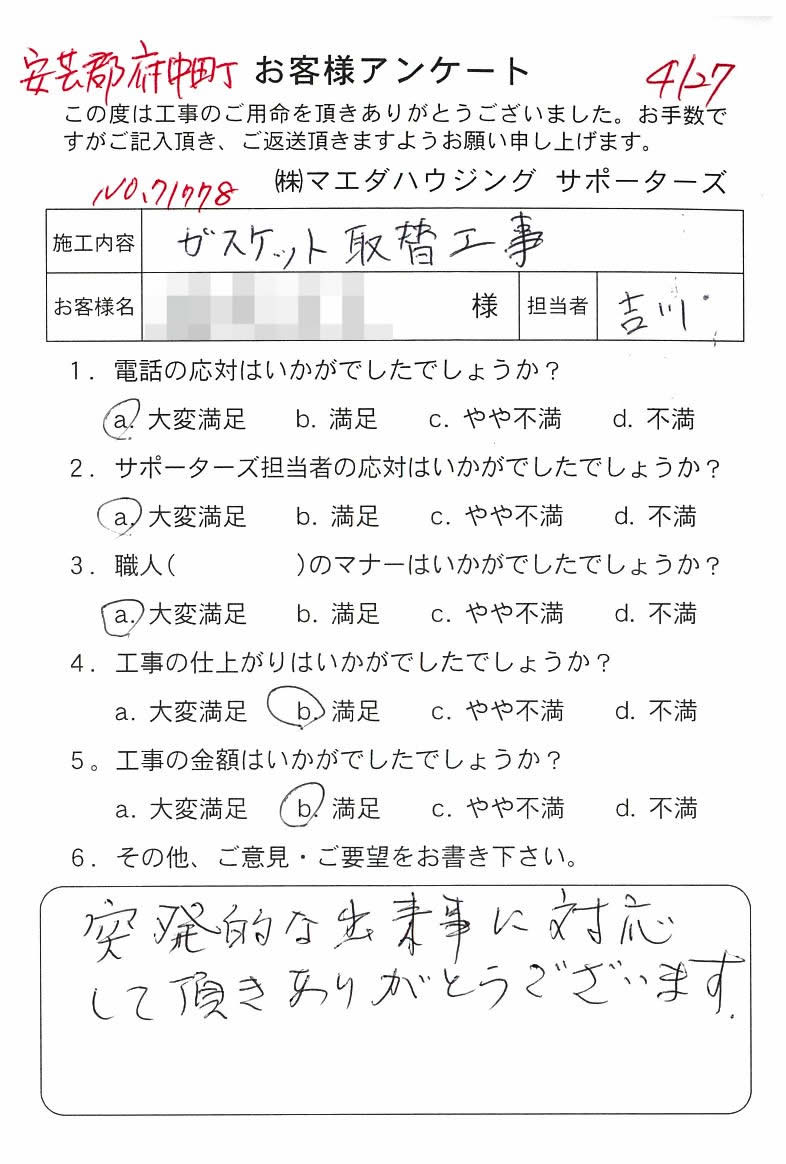 安芸郡府中町 お客様アンケート 4/27
この度は工事のご用命を頂きありがとうございました。お手数で
すがご記入頂き、ご返送頂きますようお願い申し上げます。
NO.71778 ㈱マエダハウジング サポーターズ
施工内容 ガスケット取替工事
お客様名 様 担当者 吉川
1. 電話の応対はいかがでしたでしょうか？
a. 大変満足 b. 満足 c. やや不満 d. 不満
2. サポーターズ担当者の応対はいかがでしたでしょうか？
a. 大変満足 b. 満足 c. やや不満 d. 不満
3. 職人( )のマナーはいかがでしたでしょうか？
a. 大変満足 b. 満足 c. やや不満 d. 不満
4. 工事の仕上がりはいかがでしたでしょうか？
a. 大変満足 b. 満足 c. やや不満 d. 不満
5。工事の金額はいかがでしたでしょうか？
a. 大変満足 b. 満足 c. やや不満 d. 不満
6. その他、ご意見・ご要望をお書き下さい。
突発的な出来事に対応
して頂きありがとうございます.